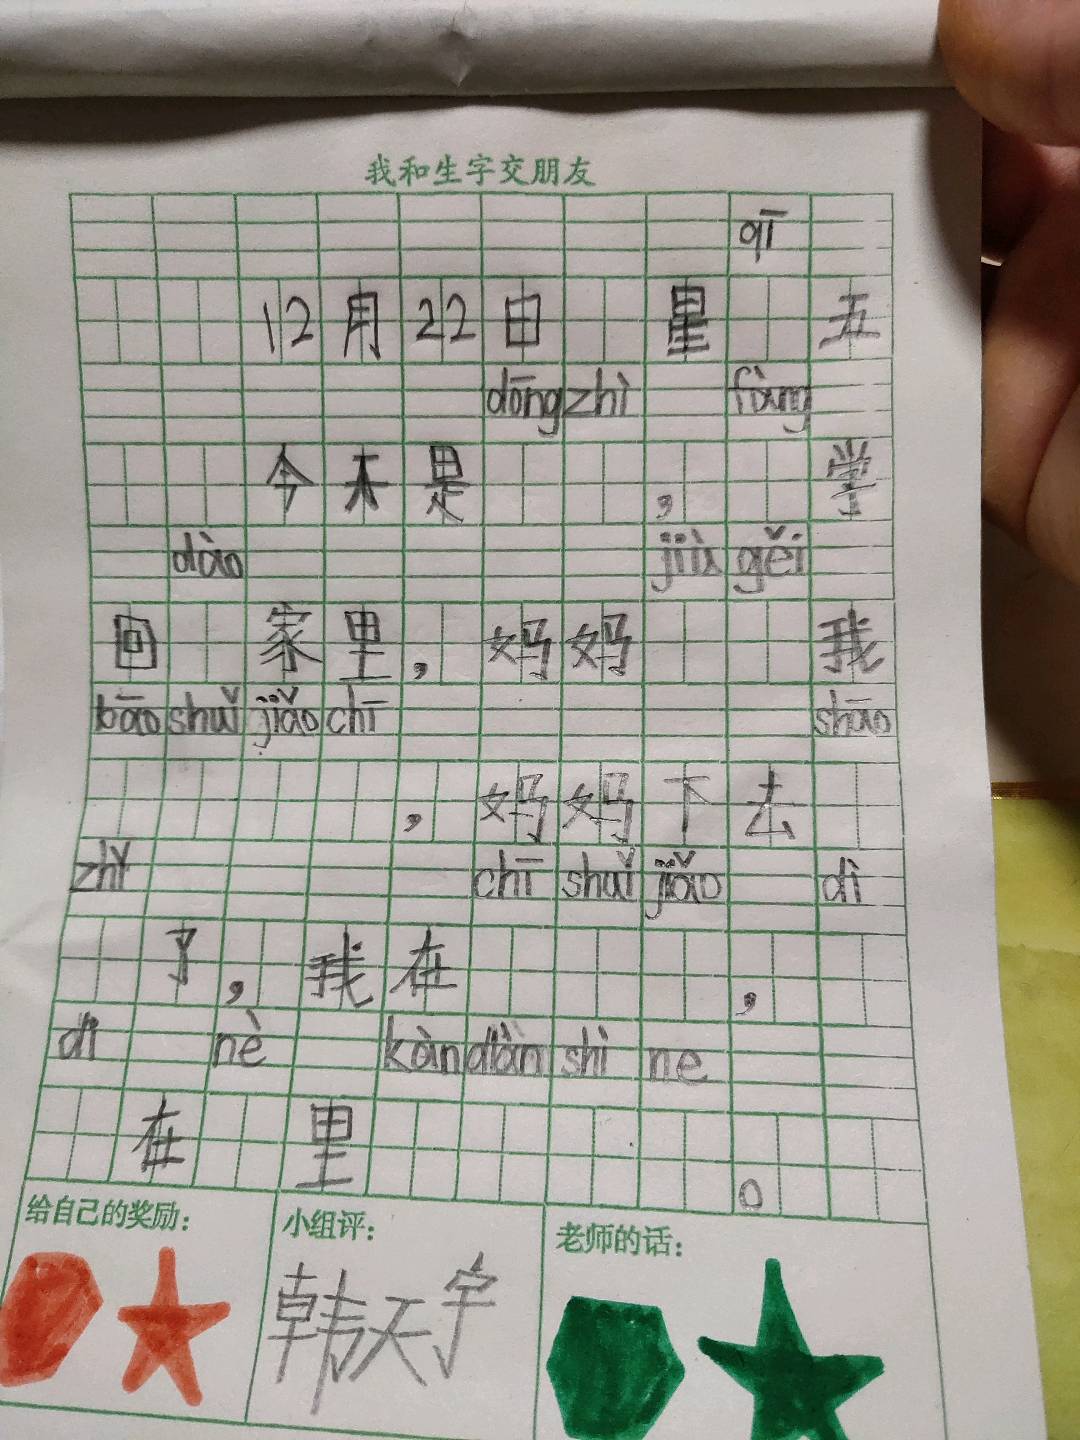 我和生字交朋友
qī
12月22日 星 五
dōng zhì fàng
今天是 , 学
dào jiù gěi
回 家里, 妈妈 我
bāo shuǐ jiǎo chī shāo
, 妈妈下去
zhǐ chī shuǐ jiǎo dì
了, 我在 ,
di nè kàn diàn shì ne
在 里 。
给自己的奖励:
小组评:
韩天宇
老师的话: